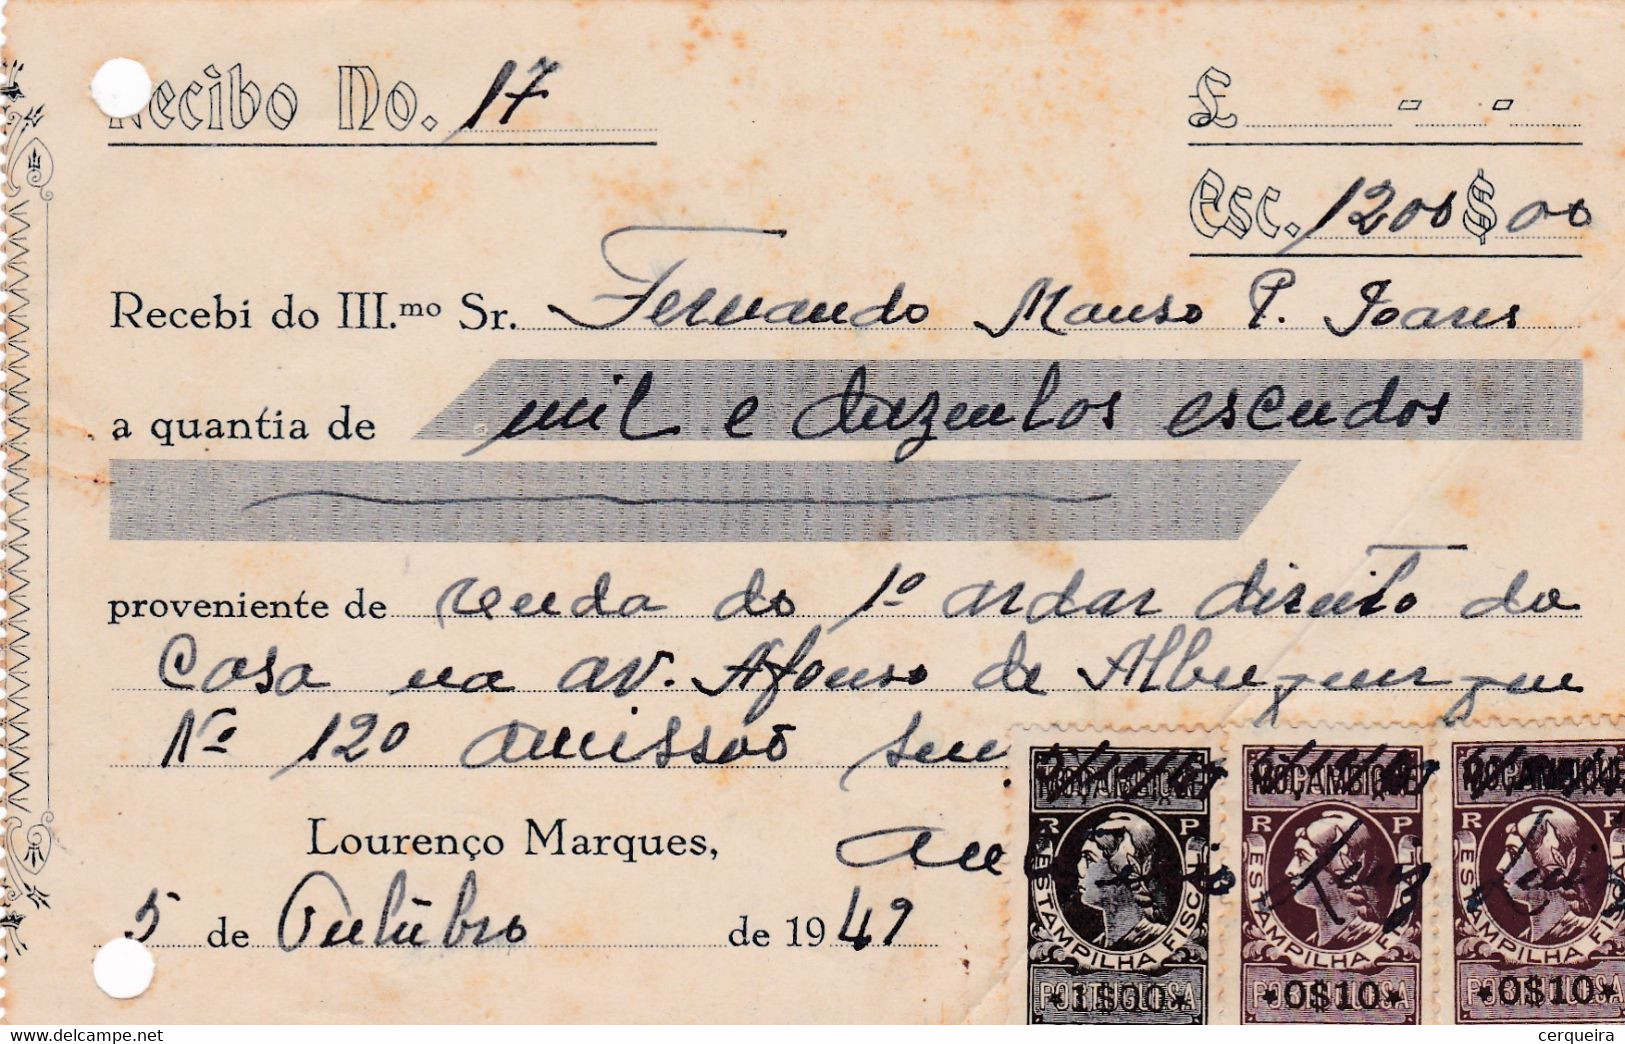 Recibo No. 17
£ - -
Esc. 1200$00
Recebi do Ill.mo Sr. Fernando Manso P. Soares
a quantia de mil e duzentos escudos
proveniente de renda do 1º andar direito da
Casa na av. Afonso de Albuquerque
Nº 120
Lourenço Marques,
5 de Outubro de 1949
MOÇAMBIQUE MOÇAMBIQUE MOÇAMBIQUE
R P R P R P
ESTAMPILHA FISCAL ESTAMPILHA FISCAL ESTAMPILHA FISCAL
PORTUGUESA PORTUGUESA PORTUGUESA
1$00 0$10 0$10
www.delcampe.net
cerqueira